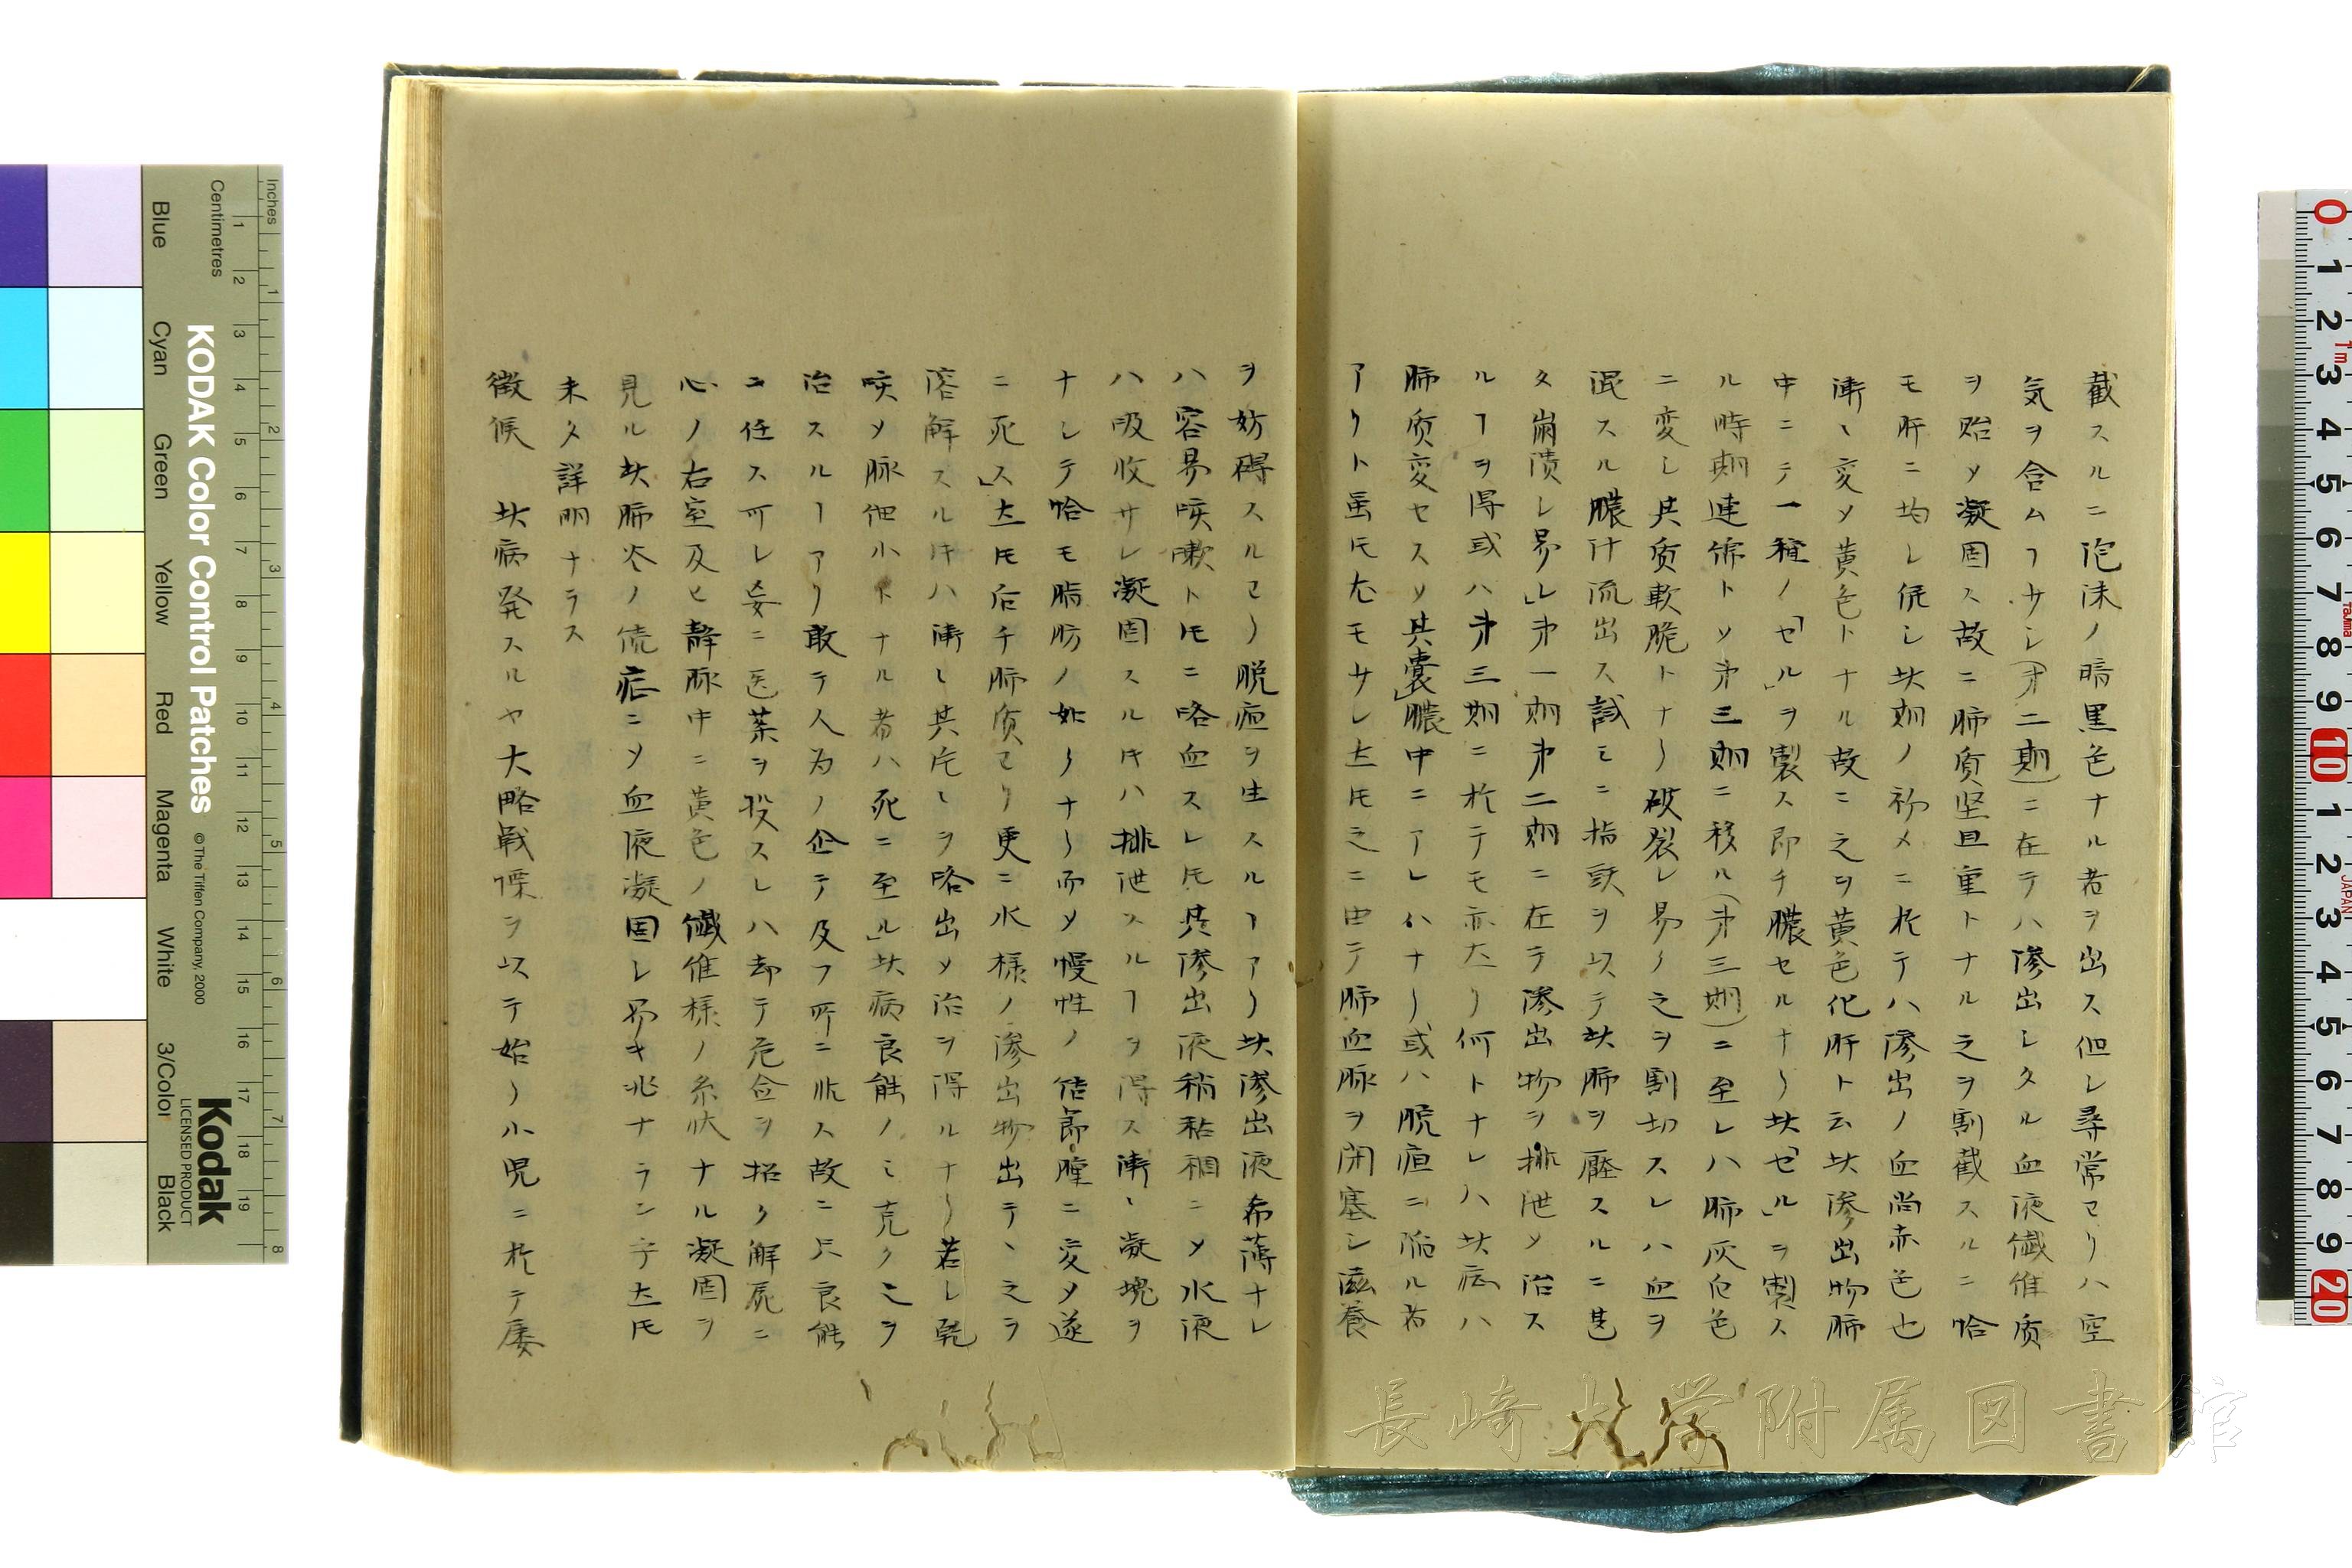 截スルニ泡沫ノ暗黒色ナル者ヲ出ス但シ尋常ヨリハ空
気ヲ含ムヿ少シ(才二期)ニ在テハ滲出シタル血液繊維质
ヲ貽メ凝固ス故ニ肺质坚且重トナル之ヲ割截スルニ恰
モ肝ニ均シ但シ此期ノ初メニ於テハ滲出ノ血尚赤色也
漸々変メ黄色トナル故ニ之ヲ黄色化肝ト云此滲出物肺
中ニテ一種ノ「セル」ヲ製ス即チ膿セルナリ此「セル」ヲ製ス
ル時期連綿トメ才三期ニ移ル(才三期)ニ至レハ肺灰白色
ニ変シ其质軟脆トナリ破裂レ易シ之ヲ割切スレハ血ヲ
混スル膿汁流出ス試ミニ指頭ヲ以テ此肺ヲ壓スルニ甚
タ崩潰レ易シ」才一期才二期ニ在テ滲出物ヲ排泄メ治ス
ルヿヲ得或ハ才三期ニ於テモ亦然リ何トナレハ此病ハ
肺质変セスメ其嚢膿中ニアレハナリ或ハ脱疽ニ陥ル者
アリト虽𪜈尤モ少シ然𪜈之ニ由テ肺血脉ヲ閉塞シ滋養
ヲ妨碍スルヨリ脱疽ヲ生スルヿアリ此滲出液希薄ナレ
ハ容易咳嗽ト𪜈ニ咯血スレ𪜈其滲出液稍粘稠ニメ水液
ハ吸收サレ凝固スル𪜈ハ排泄スルヿヲ得ス漸々凝塊ヲ
ナシテ恰モ脂肪ノ如クナリ而メ慢性ノ結節腫ニ変メ遂
ニ死ス」然𪜈后チ肺质ヨリ更ニ水様ノ滲出物出テヽ之ヲ
溶解スルキハ漸々其片々ヲ咯出メ治ヲ得ルナリ若シ乾
咳メ脉細小トナル者ハ死ニ至ル」此病良能ノミ克ク之ヲ
治スルヿアリ敢テ人为ノ企テ及フ所ニ非ス故ニ只良能
ニ任ス可シ妄ニ医薬ヲ投スレハ却テ危险ヲ招ク解屍ニ
心ノ右室及ヒ静脉中ニ黄色ノ繊維様ノ糸状ナル凝固ヲ
見ル此肺炎ノ ニメ血液凝固シ易キ兆ナラン乎然𪜈
未タ詳明ナラス
徴候 此病発スルヤ大略戦慄ヲ以テ始リ小児ニ於テ屡
長崎大学附属図書館